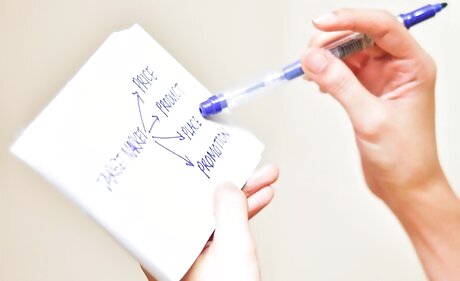 TARGET MARKET
PRICE
PRODUCT
PLACE
PROMOTION